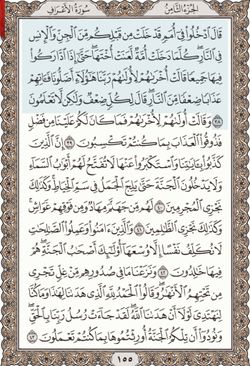 الجزء الثامن سورة الأعراف
قَالَ ٱدۡخُلُواْ فِيٓ أُمَمٖ قَدۡ خَلَتۡ مِن قَبۡلِكُم مِّنَ ٱلۡجِنِّ وَٱلۡإِنسِ
فِي ٱلنَّارِۖ كُلَّمَا دَخَلَتۡ أُمَّةٞ لَّعَنَتۡ أُخۡتَهَاۖ حَتَّىٰٓ إِذَا ٱدَّارَكُواْ
فِيهَا جَمِيعٗا قَالَتۡ أُخۡرَىٰهُمۡ لِأُولَىٰهُمۡ رَبَّنَا هَٰٓؤُلَآءِ أَضَلُّونَا فَـَٔاتِهِمۡ
عَذَابٗا ضِعۡفٗا مِّنَ ٱلنَّارِۖ قَالَ لِكُلّٖ ضِعۡفٞ وَلَٰكِن لَّا تَعۡلَمُونَ
٣٨ وَقَالَتۡ أُولَىٰهُمۡ لِأُخۡرَىٰهُمۡ فَمَا كَانَ لَكُمۡ عَلَيۡنَا مِن فَضۡلٖ
فَذُوقُواْ ٱلۡعَذَابَ بِمَا كُنتُمۡ تَكۡسِبُونَ ٣٩ إِنَّ ٱلَّذِينَ
كَذَّبُواْ بِـَٔايَٰتِنَا وَٱسۡتَكۡبَرُواْ عَنۡهَا لَا تُفَتَّحُ لَهُمۡ أَبۡوَٰبُ ٱلسَّمَآءِ
وَلَا يَدۡخُلُونَ ٱلۡجَنَّةَ حَتَّىٰ يَلِجَ ٱلۡجَمَلُ فِي سَمِّ ٱلۡخِيَاطِۚ وَكَذَٰلِكَ
نَجۡزِي ٱلۡمُجۡرِمِينَ ٤٠ لَهُم مِّن جَهَنَّمَ مِهَادٞ وَمِن فَوۡقِهِمۡ غَوَاشٖۚ
وَكَذَٰلِكَ نَجۡزِي ٱلظَّٰلِمِينَ ٤١ وَٱلَّذِينَ ءَامَنُواْ وَعَمِلُواْ ٱلصَّٰلِحَٰتِ
لَا نُكَلِّفُ نَفۡسًا إِلَّا وُسۡعَهَآ أُوْلَٰٓئِكَ أَصۡحَٰبُ ٱلۡجَنَّةِۖ هُمۡ
فِيهَا خَٰلِدُونَ ٤٢ وَنَزَعۡنَا مَا فِي صُدُورِهِم مِّنۡ غِلّٖ تَجۡرِي
مِن تَحۡتِهِمُ ٱلۡأَنۡهَٰرُۖ وَقَالُواْ ٱلۡحَمۡدُ لِلَّهِ ٱلَّذِي هَدَىٰنَا لِهَٰذَا وَمَا كُنَّا
لِنَهۡتَدِيَ لَوۡلَآ أَنۡ هَدَىٰنَا ٱللَّهُۖ لَقَدۡ جَآءَتۡ رُسُلُ رَبِّنَا بِٱلۡحَقِّۖ
وَنُودُوٓاْ أَن تِلۡكُمُ ٱلۡجَنَّةُ أُورِثۡتُمُوهَا بِمَا كُنتُمۡ تَعۡمَلُونَ ٤٣
١٥٥